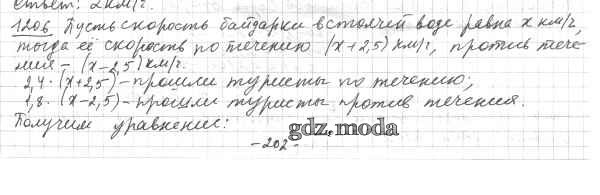 Ответ: 2 км/ч.
1206 Пусть скорость байдарки в стоячей воде равна x км/ч,
тогда её скорость по течению (x+2,5) км/ч, против тече-
ния – (x-2,5) км/ч.
2,4·(x+2,5) – прошли туристы по течению;
1,8·(x-2,5) – прошли туристы против течения.
Получим уравнение:
gdz.moda
-202-